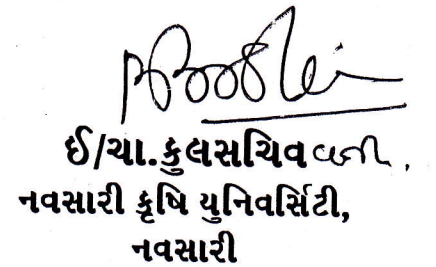 ઈ/ચા.કુલસચિવ વતી,
નવસારી કૃષિ યુનિવર્સિટી,
નવસારી